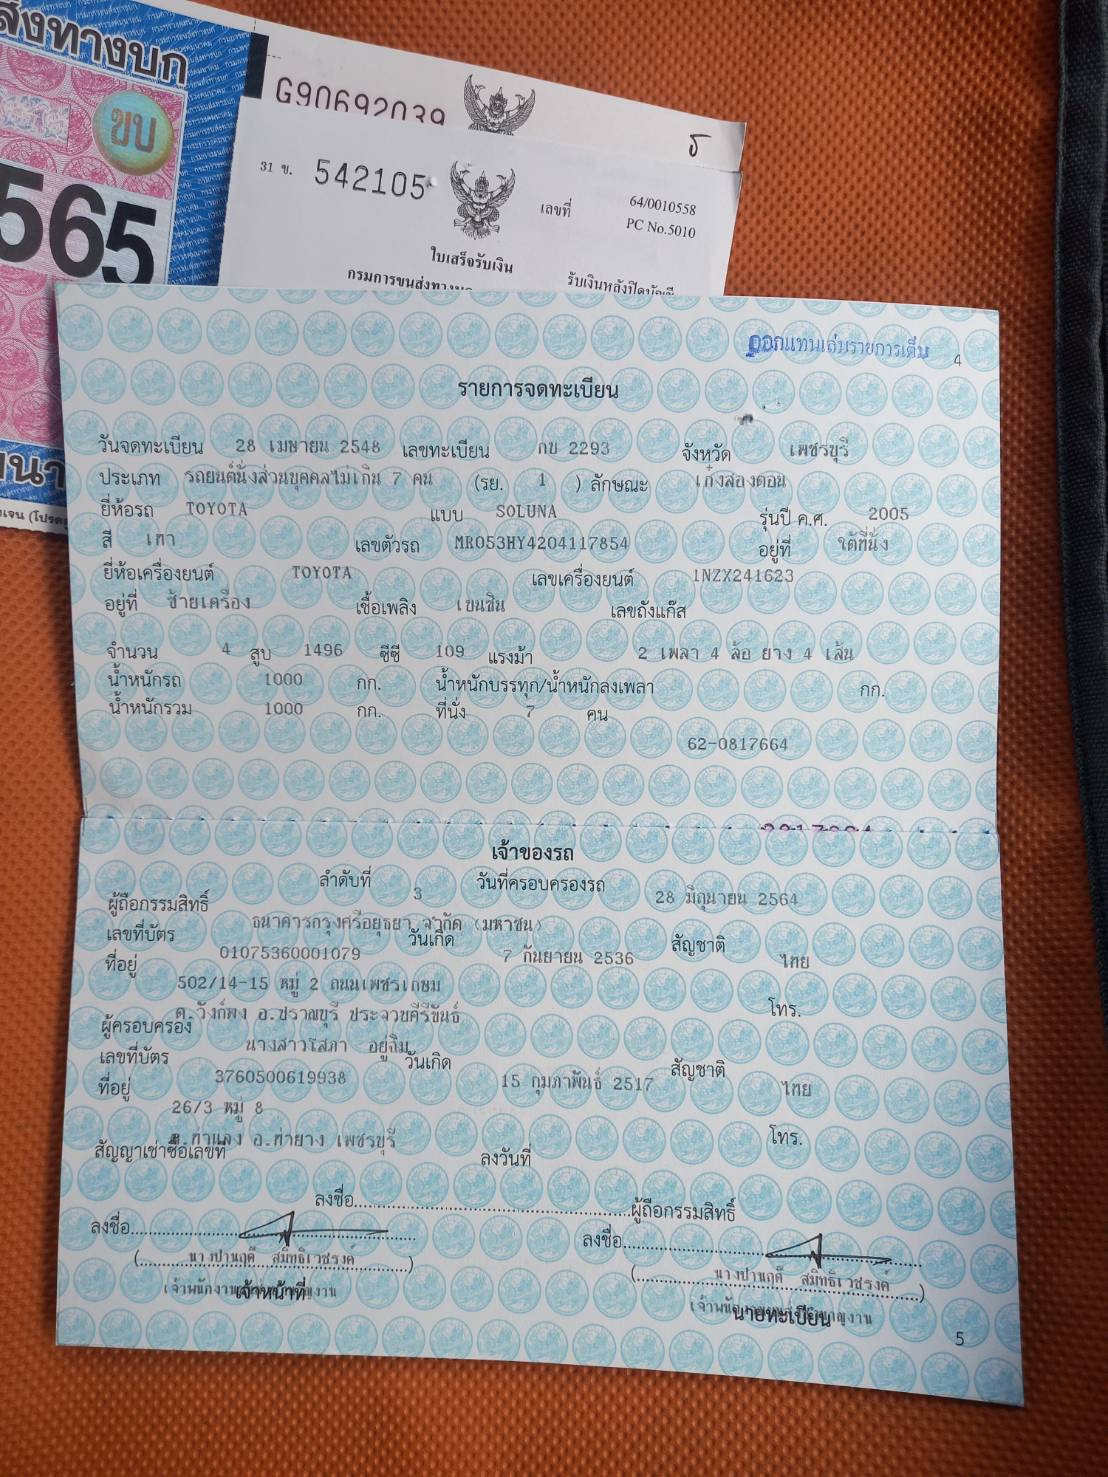 ส่งทางบก
ขบ
565
G90692039
31 ข. 542105 เลขที่ 64/0010558
PC No.5010
ใบเสร็จรับเงิน
กรมการขนส่งทางบก รับเงินหลังปิดบัญชี
ออกแทนเล่มรายการเต็ม 4
รายการจดทะเบียน
วันจดทะเบียน 28 เมษายน 2548 เลขทะเบียน กข 2293 จังหวัด เพชรบุรี
ประเภท รถยนต์นั่งส่วนบุคคลไม่เกิน 7 คน (รย. 1 ) ลักษณะ เก๋งสองตอน
ยี่ห้อรถ TOYOTA แบบ SOLUNA รุ่นปี ค.ศ. 2005
สี เทา เลขตัวรถ MR053HY4204117854 อยู่ที่ ใต้ที่นั่ง
ยี่ห้อเครื่องยนต์ TOYOTA เลขเครื่องยนต์ 1NZX241623
อยู่ที่ ซ้ายเครื่อง เชื้อเพลิง เบนซิน เลขถังแก๊ส
จำนวน 4 สูบ 1496 ซีซี 109 แรงม้า 2 เพลา 4 ล้อ ยาง 4 เส้น
น้ำหนักรถ 1000 กก. น้ำหนักบรรทุก/น้ำหนักลงเพลา กก.
น้ำหนักรวม 1000 กก. ที่นั่ง 7 คน
62-0817664
เจ้าของรถ
ลำดับที่ 3 วันที่ครอบครองรถ 28 มิถุนายน 2564
ผู้ถือกรรมสิทธิ์ ธนาคารกรุงศรีอยุธยา จำกัด (มหาชน)
เลขที่บัตร 01075360001079 วันเกิด 7 กันยายน 2536 สัญชาติ ไทย
ที่อยู่ 502/14-15 หมู่ 2 ถนนเพชรเกษม
ต.วังก์พง อ.ปราณบุรี ประจวบคีรีขันธ์ โทร.
ผู้ครอบครอง นางสาวโสภา อยู่ฉิม
เลขที่บัตร 3760500619938 วันเกิด 15 กุมภาพันธ์ 2517 สัญชาติ ไทย
ที่อยู่ 26/3 หมู่ 8
ต.ท่าแลง อ.ท่ายาง เพชรบุรี โทร.
สัญญาเช่าซื้อเลขที่ ลงวันที่
ลงชื่อ ผู้ถือกรรมสิทธิ์
ลงชื่อ ลงชื่อ
(นางปานฤดี สมิทธิเวชรงค์) (นางปานฤดี สมิทธิเวชรงค์)
เจ้าหน้าที่ นายทะเบียน
5